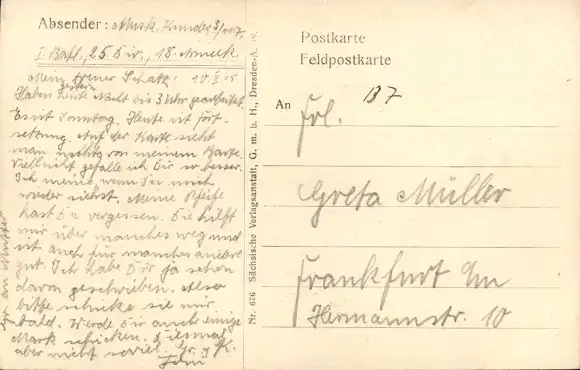 Absender: Musk. Kunder 3/107,
I. Batl., 25. Div., 18. Armeek.
Mein treuer Schatz! 10.X.15
Haben gestern Nacht bis 3 Uhr gearbeitet.
Es ist Sonntag. Heute ist fort-
setzung. Auf der Karte sieht
man nichts von meinem Barte.
Vielleicht gefalle ich Dir so besser.
Ich meine wenn Du mich
wieder siehst. Meine Pfeife
hast Du vergessen. Die hilft
mir über manches weg und
ist auch für manches andere
gut. Ich habe Dir ja schon
davon geschrieben. Also
bitte schicke sie mir
bald. Werde Dir auch einige
Mark schicken. Diesmal
aber nicht soviel. Gr. u. K.
Gr an Mutter
Nr. 676 Sächsische Verlagsanstalt, G. m. b. H., Dresden-A.
Postkarte
Feldpostkarte
137
An Frl.
Greta Müller
Frankfurt a/m
Hermannstr. 10